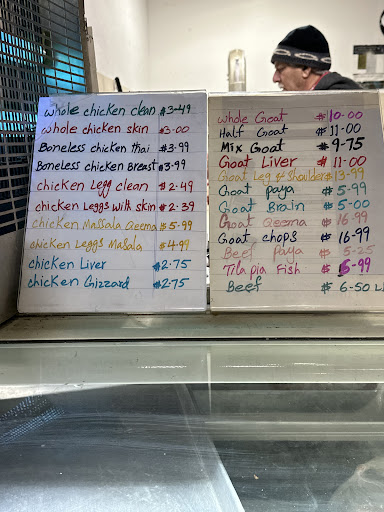 whole chicken clean $3-49
whole chicken skin $3.00
Boneless chicken thai $3.99
Boneless chicken Breast $3.99
chicken Legg clean $2.49
chicken Leggs with skin $2.39
chicken Massala Qeema $5.99
chicken Leggs Masala $4.99
chicken Liver $2.75
chicken Ghizzard $2.75
whole Goat $10.00
Half Goat $11-00
Mix Goat $9-75
Goat Liver $11.00
Goat Leg & Shoulder $13-99
Goat Paya $5-99
Goat Brain $5-00
Goat Qeema $16-99
Goat chops $16-99
Beef Paya $5-25
Tilapia Fish $5-99
Beef $6-50 L